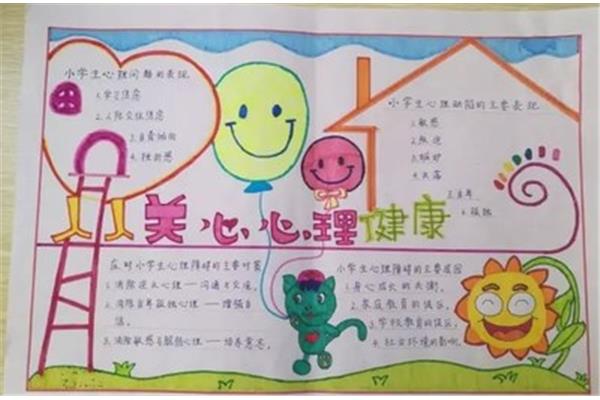 小学生心理问题的表现
1.学习焦虑
2.人际交往焦虑
3.自责倾向
4.孤独感
小学生心理缺陷的主要表现
1.敏感
2.叛逆
3.嫉妒
4.失落
5.自卑
6.孤独
关心心理健康
应对小学生心理障碍的主要对策
1.消除逆反心理——沟通与交流。
2.消除自卑孤独心理——增强自
信。
3.消除敏感与脆弱心理——培养意志。
小学生心理障碍的主要原因
1.身心成长的失衡。
2.家庭教育的误区。
3.学校教育的误区。
4.社会环境的影响。